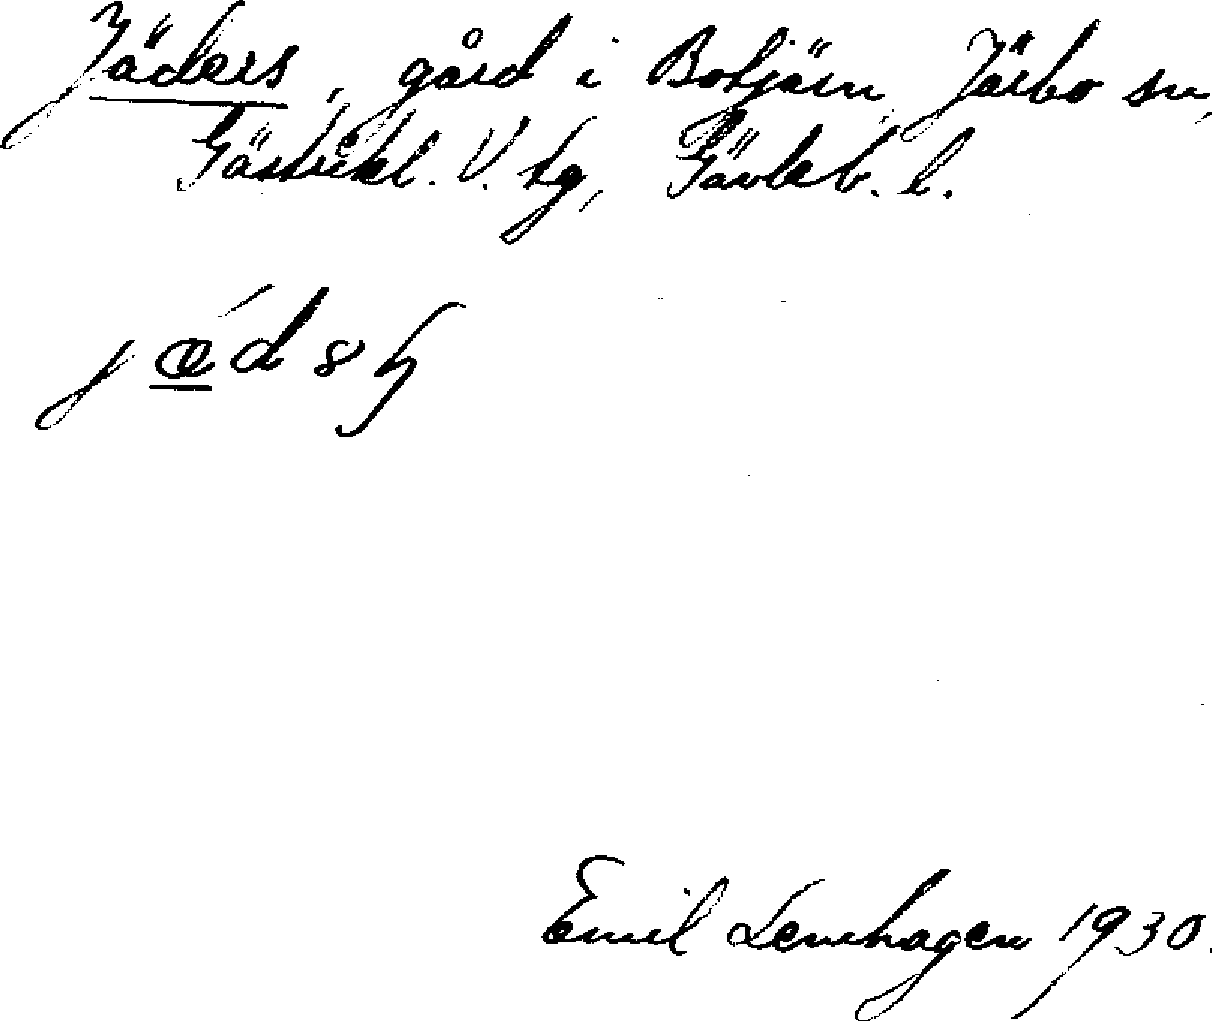 Jäders, gård i Botjärn, Järbo sn,
Gästrikl. V. tg, Gävleb. l.
Emil Lenhagen 1930.